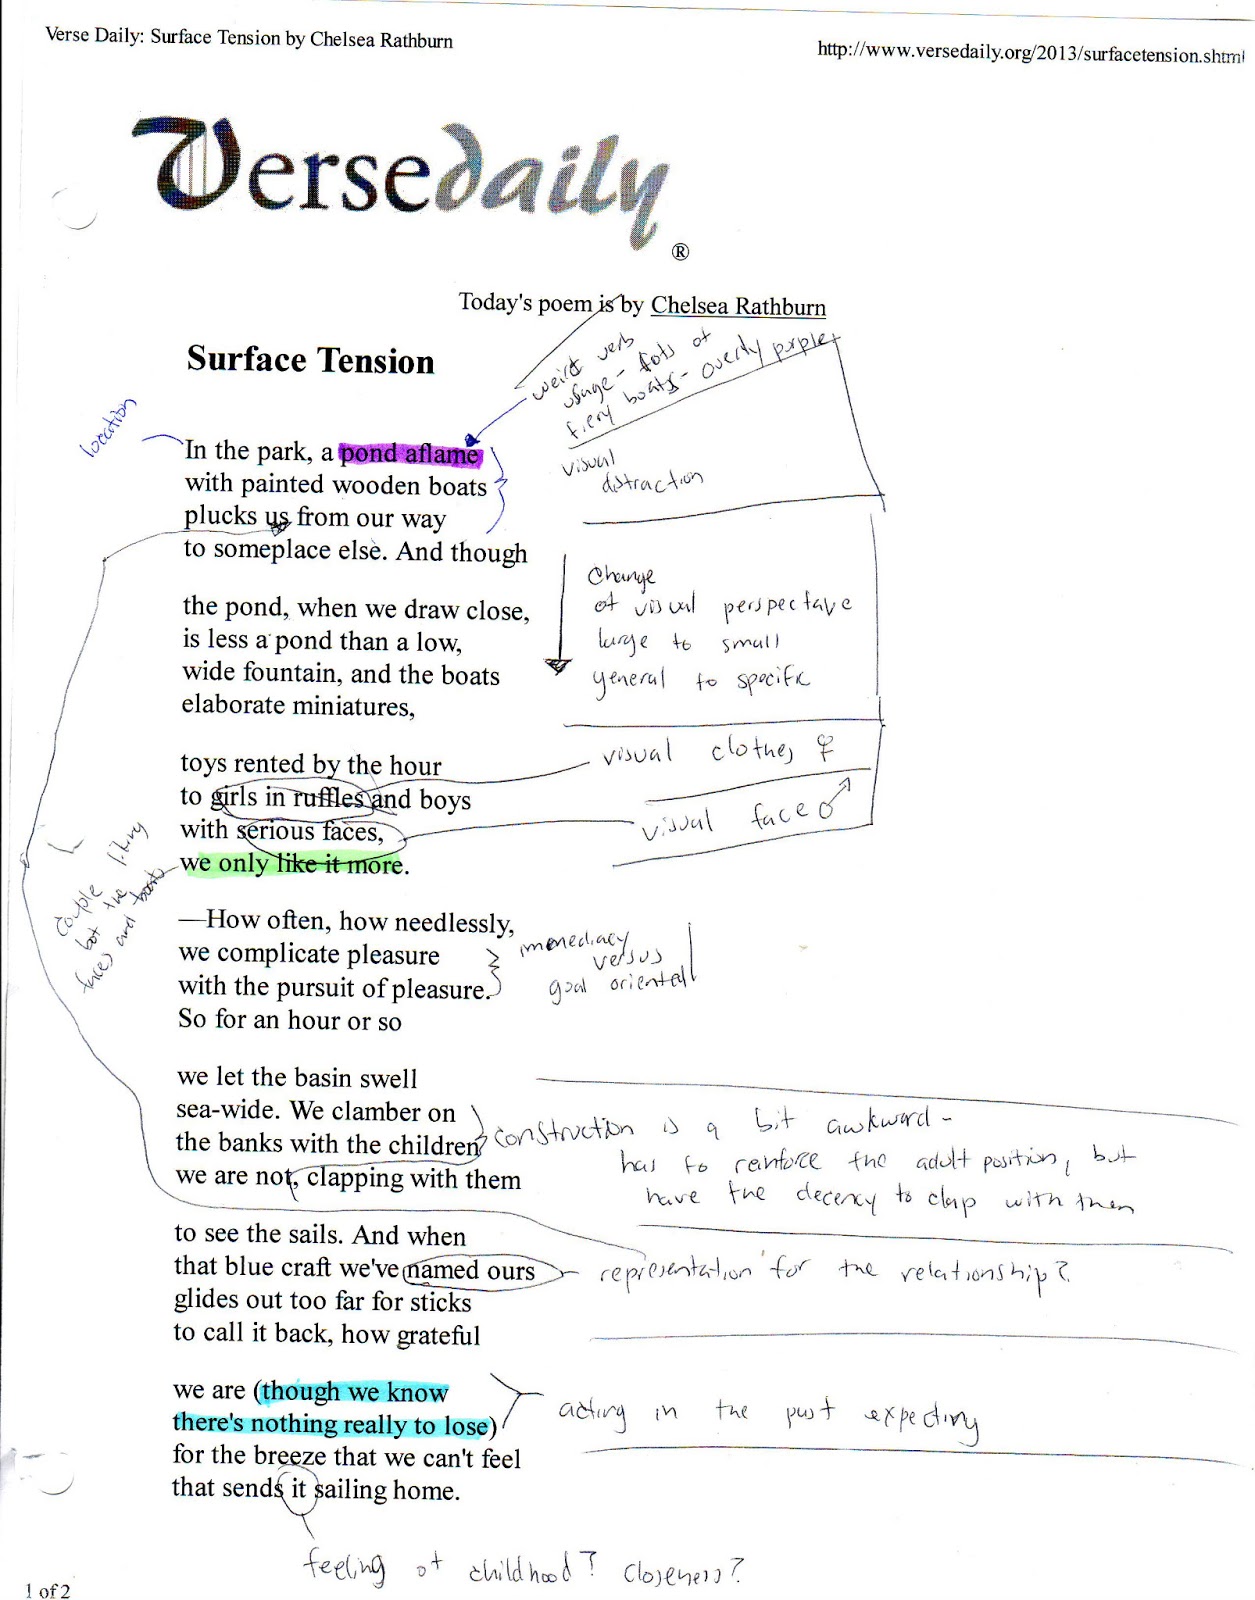 Verse Daily: Surface Tension by Chelsea Rathburn
http://www.versedaily.org/2013/surfacetension.shtml
Versedaily
®
Today's poem is by Chelsea Rathburn
Surface Tension
weird verb
usage - lots of
fiery boats - overly purple
location
In the park, a pond aflame
with painted wooden boats
plucks us from our way
to someplace else. And though
visual
distraction
the pond, when we draw close,
is less a pond than a low,
wide fountain, and the boats
elaborate miniatures,
Change
of visual perspectave
large to small
general to specific
toys rented by the hour
to girls in ruffles and boys
with serious faces,
we only like it more.
visual clothes ♀
visual face ♂
couple liking
bot the
faces and boats
—How often, how needlessly,
we complicate pleasure
with the pursuit of pleasure.
So for an hour or so
immediacy
versus
goal oriented
we let the basin swell
sea-wide. We clamber on
the banks with the children
we are not, clapping with them
construction is a bit awkward -
has to reinforce the adult position, but
have the decency to clap with them
to see the sails. And when
that blue craft we've named ours
glides out too far for sticks
to call it back, how grateful
representation for the relationship?
we are (though we know
there's nothing really to lose)
for the breeze that we can't feel
that sends it sailing home.
acting in the past expecting
feeling of childhood? closeness?
1 of 2